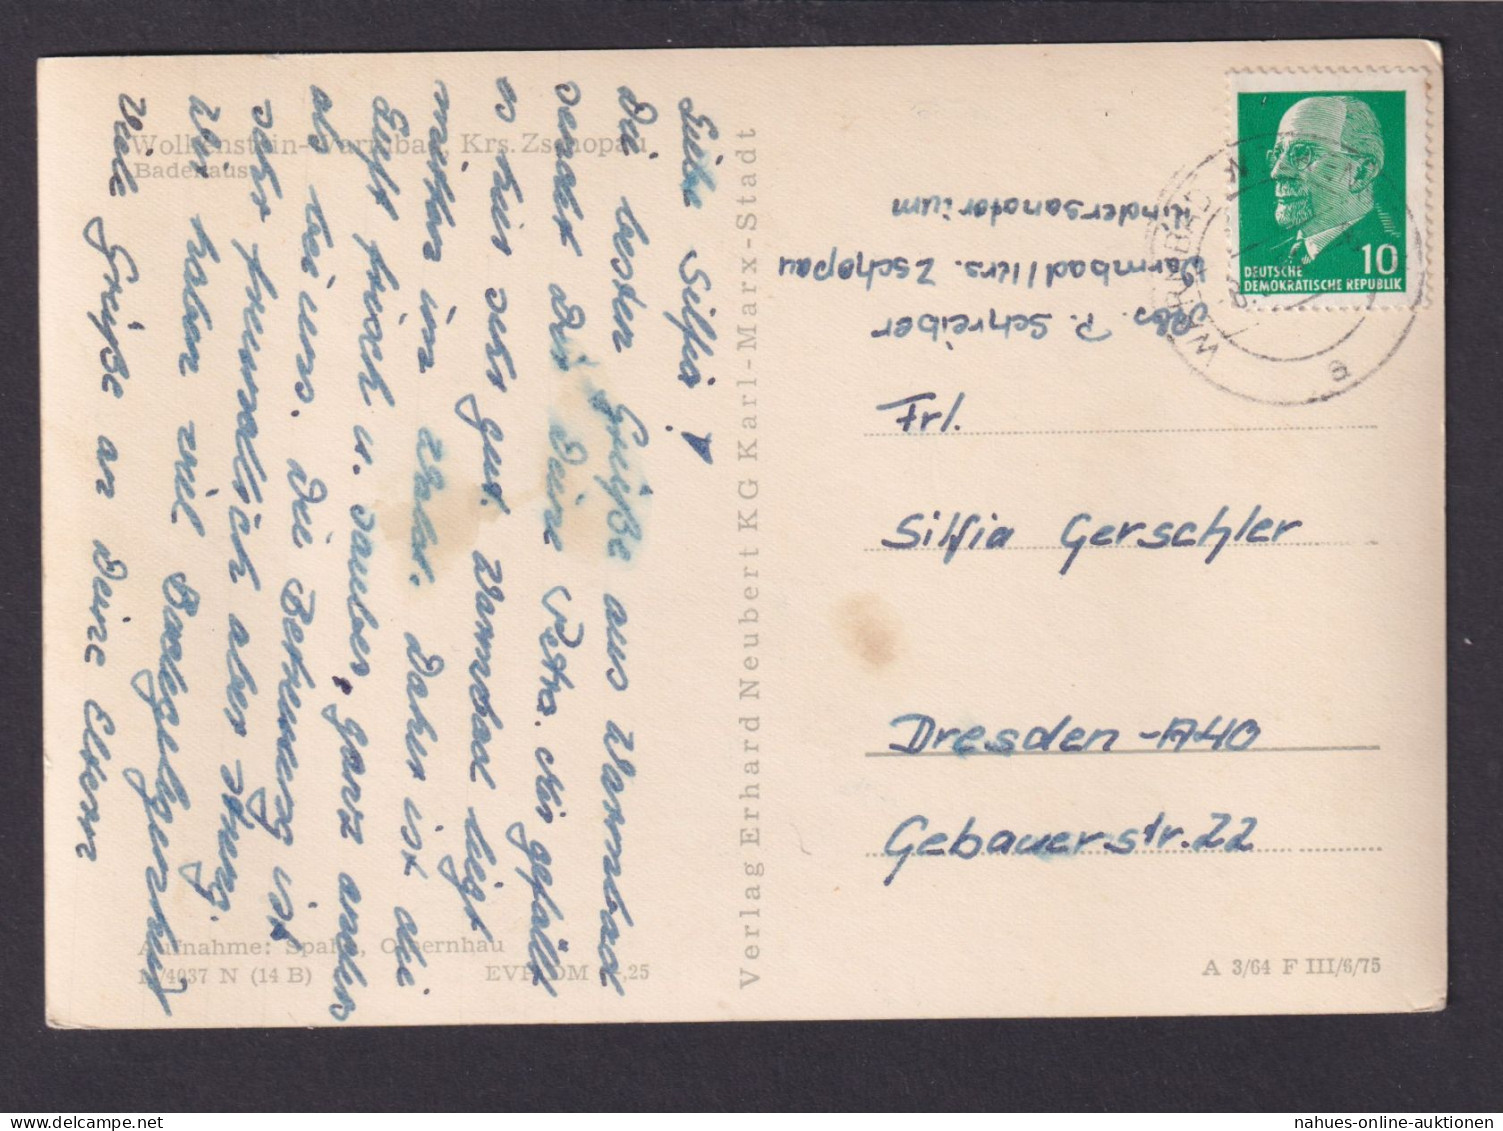 Wolkenstein-Warmbad, Krs. Zschopau
Badehaus
Liebe Silfia!
Die besten Grüße aus Warmbad
sendet dir Deine Petra. Mir gefällt
es hier sehr gut. Warmbad liegt
mitten im Walde. Daher ist die
Luft frisch u. sauber, ganz anders
als bei uns. Die Betreuung ist
sehr freundlich aber streng.
Wir haben viel Badegelegenheit
Viele Grüße an Deine Eltern
Aufnahme: Spahn, Olbernhau
/4037 N (14 B)
EVP DM -,25
Verlag Erhard Neubert KG Karl-Marx-Stadt
Abs. P. Schreiber
Warmbad/Krs. Zschopau
Kindersanatorium
10
DEUTSCHE
DEMOKRATISCHE REPUBLIK
WARMBAD
a
Frl.
Silfia Gerschler
Dresden-A40
Gebauerstr. 22
A 3/64 F III/6/75
nahues-online-auktionen